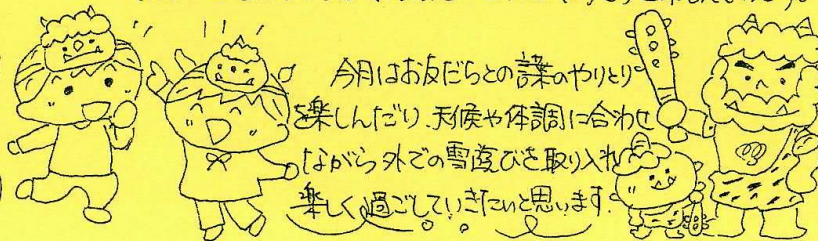 今月はお友だちとの言葉のやりとり
を楽しんだり、天候や体調に合わせ
ながら外での雪遊びを取り入れ
楽しく過ごしていきたいと思います。